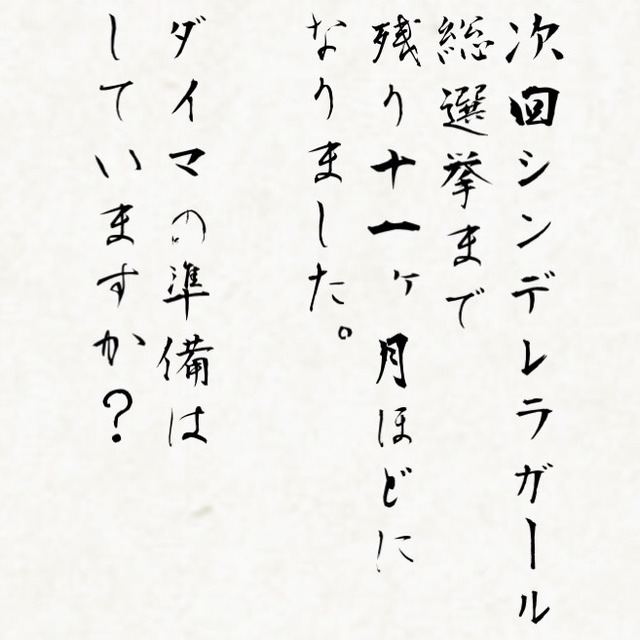 次回シンデレラガール
総選挙まで
残り十一ヶ月ほどに
なりました。
ダイマの準備は
していますか?